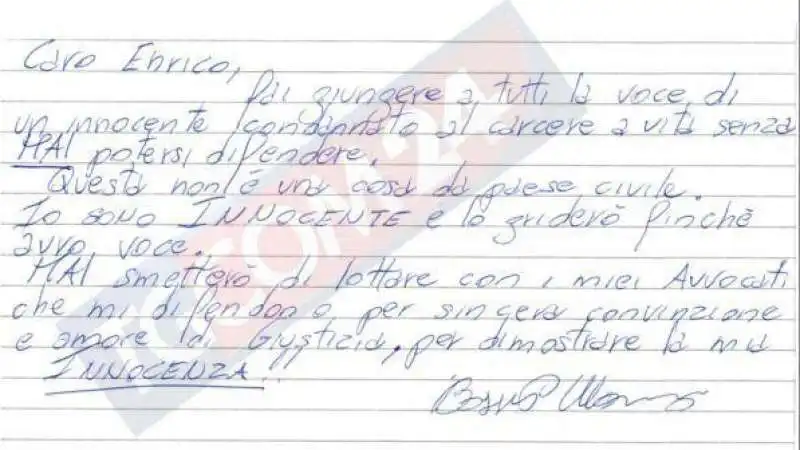 Caro Enrico,
Fai giungere a tutti la voce di
un innocente condannato al carcere a vita senza
MAI potersi difendere.
Questa non è una cosa da paese civile.
Io sono INNOCENTE e lo griderò finchè
avrò voce.
MAI smetterò di lottare con i miei Avvocati
che mi difendono per sincera convinzione
e amore di Giustizia, per dimostrare la mia
INNOCENZA.
TGCOM24